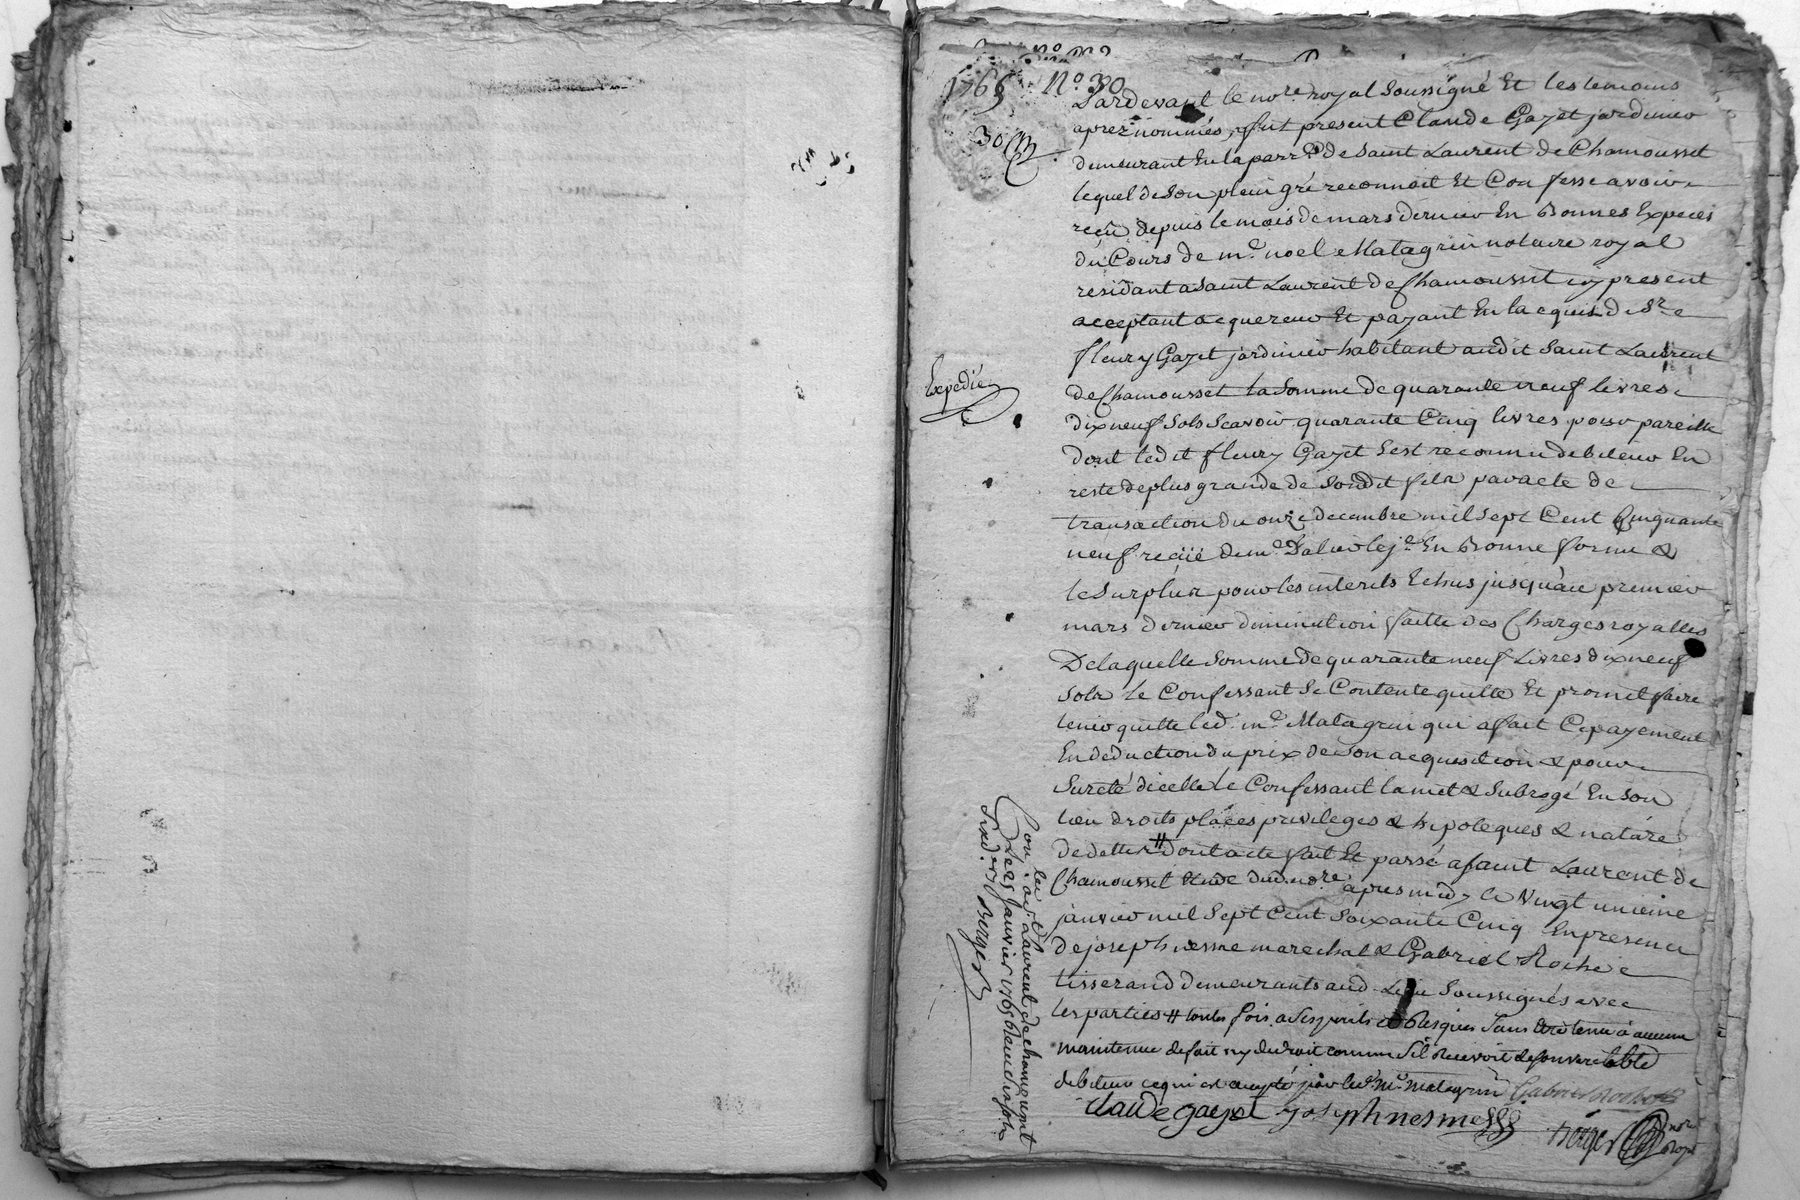 1765 N.º 30
30
Pardevant le no.re royal Soussigné Et les temoins
aprez nommés, fut present Claude Gayet jardinier
demeurant En la parr.e de Saint Laurent de Chamousset
lequel de Son plein gré reconnoit Et Confesse avoir
reçu depuis le mois de mars dernier En Bonnes Especes
du Cours de m.e noel Matagrin notaire royal
residant a Saint Laurent de Chamousset icy present
acceptant acquereur Et payant En l'acquit de Sr.
fleury Gayet jardinier habitant audit Saint Laurent
de Chamousset la Somme de quarante neuf livres
dix neuf Sols Scavoir quarante Cinq livres pour pareille
dont ledit fleury Gayet S'est reconnu debiteur En
reste de plus grande de Sondit fils par acte de
transaction du onze decembre mil Sept Cent Cinquante
neuf reçüe de m.e le j.e En Bonne forme &
le Surplus pour les interets Echus jusqu'au premier
mars dernier diminution faitte des Charges royalles
De laquelle Somme de quarante neuf Livres dix neuf
Sols le Confessant Se Contente quitte Et promet faire
tenir quitte led. m.e Matagrin qui a fait Ce payement
En deduction du prix de Son acquisition & pour
Sureté d'icelle le Confessant la met & Subrogé En Son
lieu droits places privileges & hipoteques & nature
de dettes # dont acte fait Et passé a Saint Laurent de
Chamousset Etude dud. no.re apres midy le Vingt unieme
janvier mil Sept Cent Soixante Cinq En presence
de joseph nesme marechal & Gabriel Roche
tisserand demeurants aud. Lieu Soussignés avec
les parties # toutes fois a Ses perils et Risques Sans etre tenu a aucune
maintenue de fait ny de droit comme S'il Recevoit de Son veritable
debiteur ce qui est accepté par led. m.e matagrin Gabriel Roche
Claude gayet joseph nesme
Berger no.re Royal
Expedié
Con.lé a S.t Laurent de chamousset
le 25 Janvier 1765 Reçu
Berger